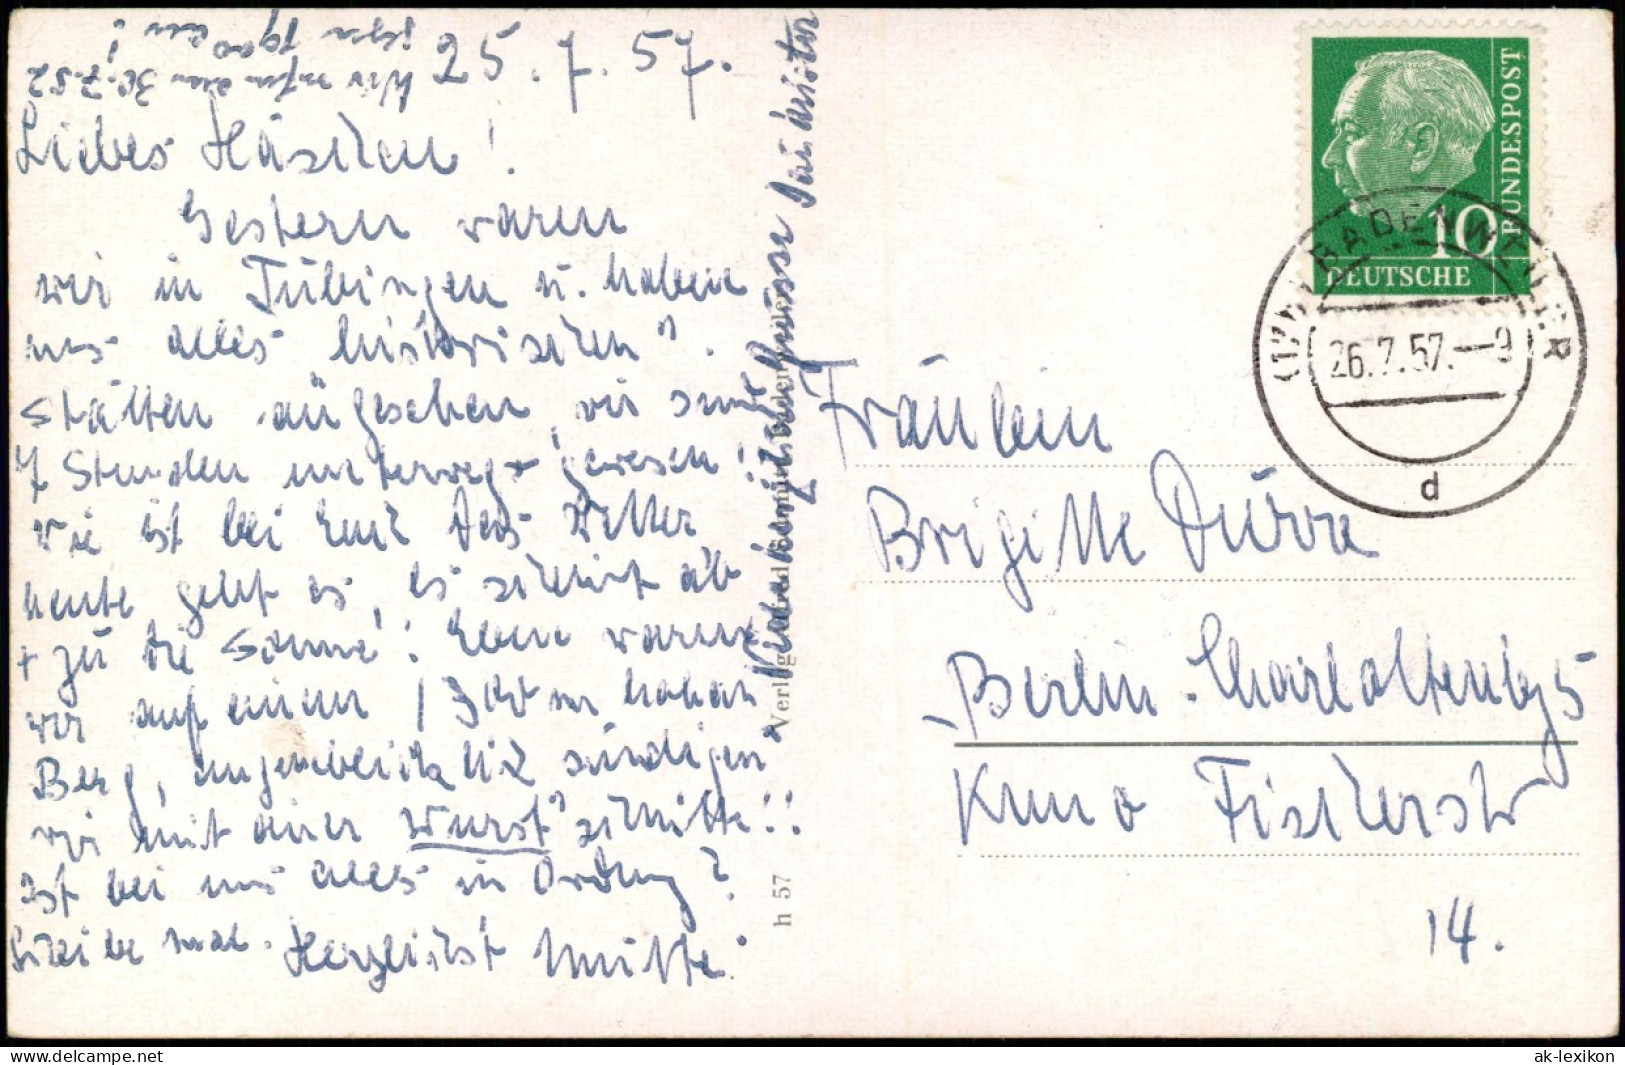 25.7.57.
Wir rufen am 30.7.57
gegen 19.00 an!
Liebes Häschen!
Gestern waren
wir in Tübingen u. haben
uns alles "historischen"
Stätten angesehen, wir sind
7 Stunden unterwegs gewesen!
Wie ist bei Euch das Wetter
heute geht es, es scheint ab
+ zu die Sonne! Eben waren
wir auf einem 1300 m hohen
Berg, augenblicklich sündigen
wir mit einer "Wurst"schnitte!!
Ist bei uns alles in Ordng?
Schreibe mal. Herzlichst Mutti.
Viele Grüsse
Verlag
Badenweiler
h 57
BUNDESPOST
10
DEUTSCHE
BADENWEILER
26.7.57.-9
d
Fräulein
Brigitte Dürre
Berlin-Charlottenbg 5
Kuno Fischerstr
14.
delcampe.net
ak-lexikon